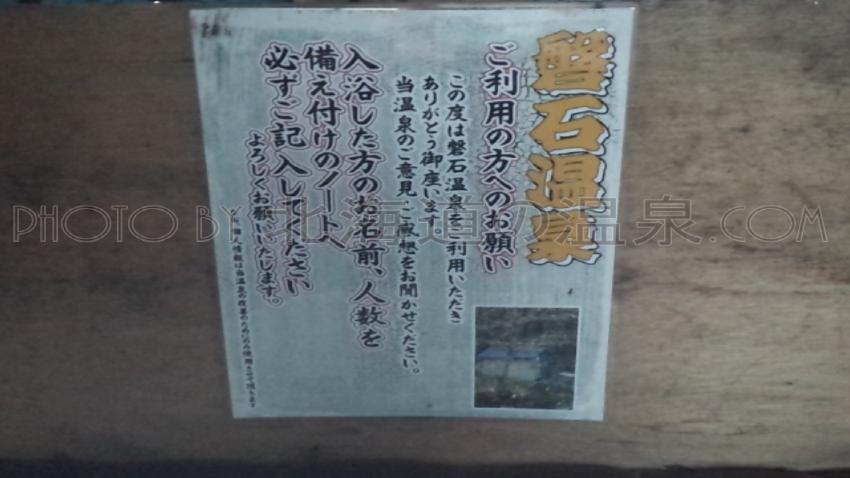 磐石温泉
ご利用の方へのお願い
この度は磐石温泉をご利用いただき
ありがとう御座います。
当温泉のご意見、ご感想をお聞かせください。
入浴した方のお名前、人数を
備え付けのノートへ
必ずご記入してください
よろしくお願いいたします。
個人情報は当温泉の改善のためにのみ使用させて頂きます
PHOTO BY 北海道の温泉.COM